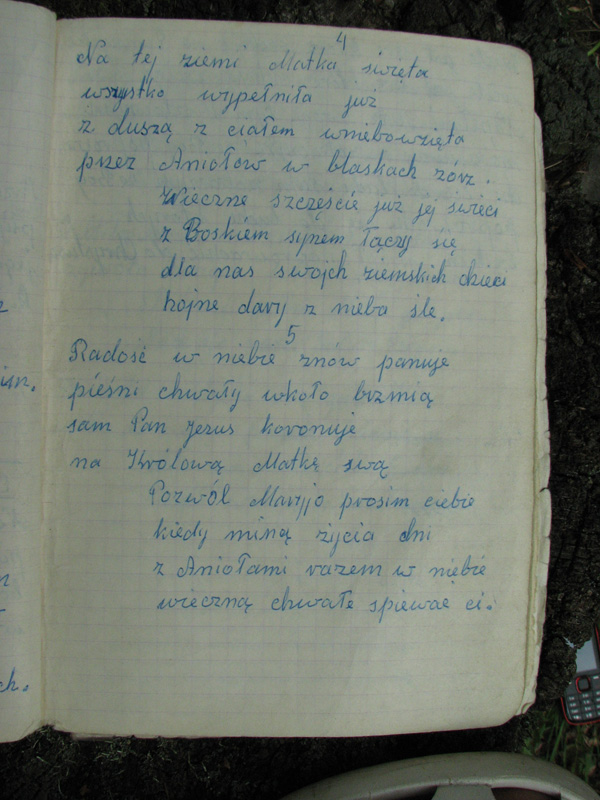 4
Na tej ziemi Matka święta
wszystko wypełniła już
z duszą z ciałem wniebowzięta
przez Aniołów w blaskach zórz.
Wieczne szczęście już jej świeci
z Boskiem synem łączy się
dla nas swojch ziemskich dzieci
hojne dary z nieba śle.
5
Radość w niebie znów panuje
pieśni chwały wkoło brzmią
sam Pan Jezus koronuje
na Królową Matkę swą
Pozwól Maryjo prosim ciebie
kiedy miną życia dni
z Aniołami razem w niebie
wieczną chwałe spiewac ci.